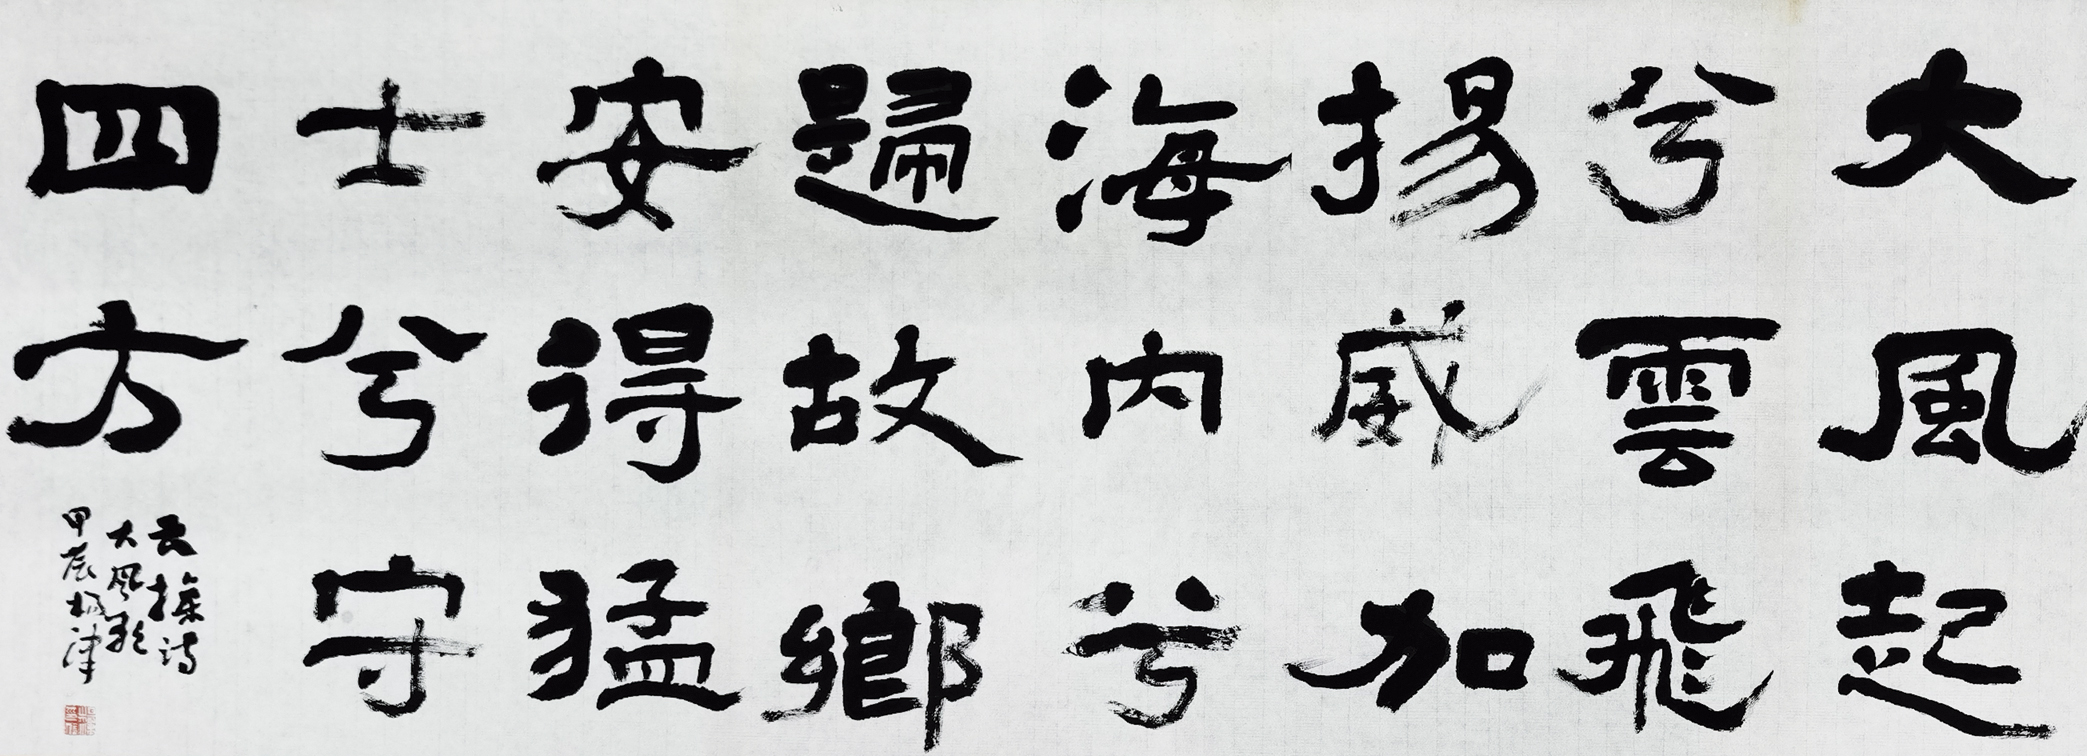 大風起
兮雲飛
揚威加
海内兮
歸故鄉
安得猛
士兮守
四方
操詩
大風歌
甲辰